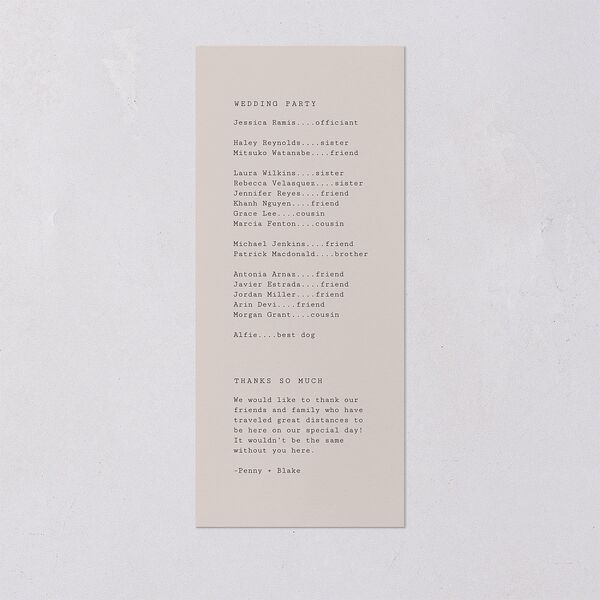 WEDDING PARTY
Jessica Ramis....officiant
Haley Reynolds....sister
Mitsuko Watanabe....friend
Laura Wilkins....sister
Rebecca Velasquez....sister
Jennifer Reyes....friend
Khanh Nguyen....friend
Grace Lee....cousin
Marcia Fenton....cousin
Michael Jenkins....friend
Patrick Macdonald....brother
Antonia Arnaz....friend
Javier Estrada....friend
Jordan Miller....friend
Arin Devi....friend
Morgan Grant....cousin
Alfie....best dog
THANKS SO MUCH
We would like to thank our
friends and family who have
traveled great distances to
be here on our special day!
It wouldn't be the same
without you here.
-Penny + Blake